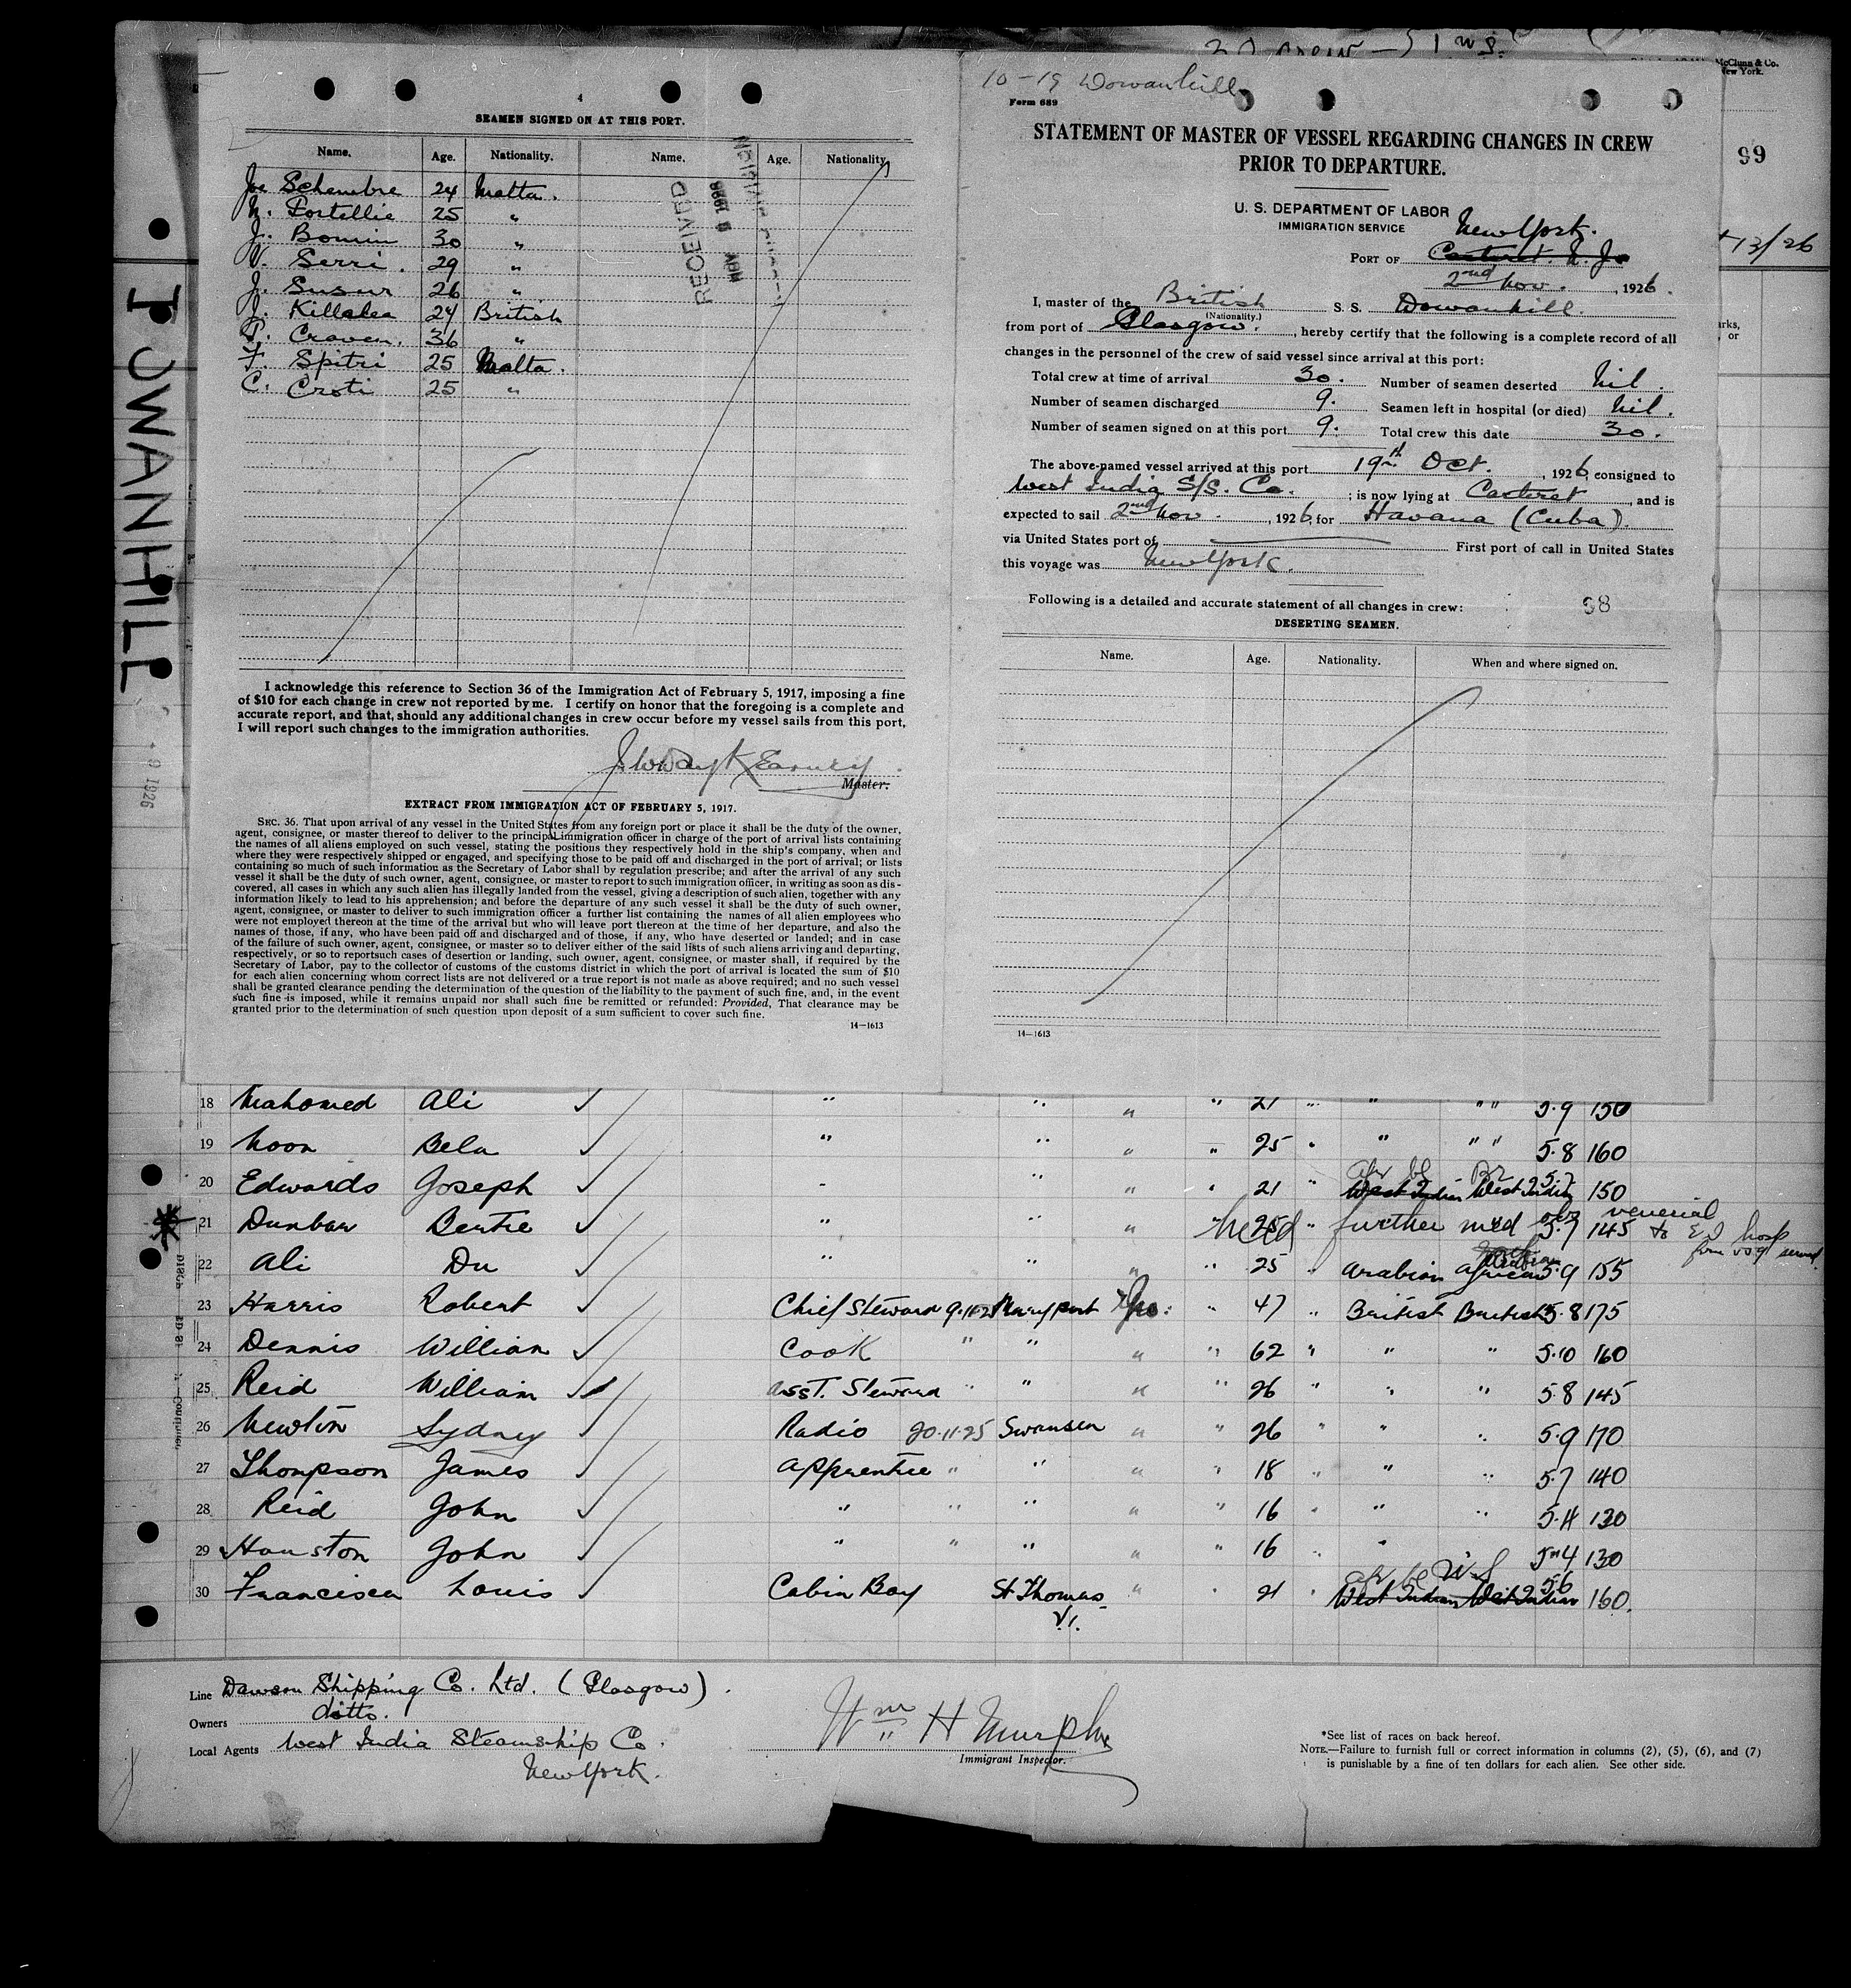 4
SEAMEN SIGNED ON AT THIS PORT.
Name. Age. Nationality. Name. Age. Nationality.
Joe Schembre 24 Malta.
N. Portellie 25 "
J. Bonnin 30 "
V. Serri. 29 "
J. Susur 26 "
J. Killalea 24 British
P. Craven. 36 "
F. Spitri 25 Malta.
C. Croti 25 "
RECEIVED
NOV
I acknowledge this reference to Section 36 of the Immigration Act of February 5, 1917, imposing a fine
of $10 for each change in crew not reported by me. I certify on honor that the foregoing is a complete and
accurate report, and that, should any additional changes in crew occur before my vessel sails from this port,
I will report such changes to the immigration authorities.
Master.
EXTRACT FROM IMMIGRATION ACT OF FEBRUARY 5, 1917.
SEC. 36. That upon arrival of any vessel in the United States from any foreign port or place it shall be the duty of the owner,
agent, consignee, or master thereof to deliver to the principal immigration officer in charge of the port of arrival lists containing
the names of all aliens employed on such vessel, stating the positions they respectively hold in the ship's company, when and
where they were respectively shipped or engaged, and specifying those to be paid off and discharged in the port of arrival; or lists
containing so much of such information as the Secretary of Labor shall by regulation prescribe; and after the arrival of any such
vessel it shall be the duty of such owner, agent, consignee, or master to report to such immigration officer, in writing as soon as dis-
covered, all cases in which any such alien has illegally landed from the vessel, giving a description of such alien, together with any
information likely to lead to his apprehension; and before the departure of any such vessel it shall be the duty of such owner,
agent, consignee, or master to deliver to such immigration officer a further list containing the names of all alien employees who
were not employed thereon at the time of the arrival but who will leave port thereon at the time of her departure, and also the
names of those, if any, who have been paid off and discharged and of those, if any, who have deserted or landed; and in case
of the failure of such owner, agent, consignee, or master so to deliver either of the said lists of such aliens arriving and departing,
respectively, or so to report such cases of desertion or landing, such owner, agent, consignee, or master shall, if required by the
Secretary of Labor, pay to the collector of customs of the customs district in which the port of arrival is located the sum of $10
for each alien concerning whom correct lists are not delivered or a true report is not made as above required; and no such vessel
shall be granted clearance pending the determination of the question of the liability to the payment of such fine, and, in the event
such fine is imposed, while it remains unpaid nor shall such fine be remitted or refunded: Provided, That clearance may be
granted prior to the determination of such question upon deposit of a sum sufficient to cover such fine.
14—1613
10-19 Dowanhill
Form 689
STATEMENT OF MASTER OF VESSEL REGARDING CHANGES IN CREW
PRIOR TO DEPARTURE.
U. S. DEPARTMENT OF LABOR
IMMIGRATION SERVICE
New York.
PORT OF Carteret. N. J.
2nd Nov., 1926.
I, master of the British S. S. Dowanhill.
(Nationality.)
from port of Glasgow., hereby certify that the following is a complete record of all
changes in the personnel of the crew of said vessel since arrival at this port:
Total crew at time of arrival 30. Number of seamen deserted Nil.
Number of seamen discharged 9. Seamen left in hospital (or died) Nil.
Number of seamen signed on at this port 9. Total crew this date 30.
The above-named vessel arrived at this port 19th Oct., 1926, consigned to
West India S/S. Co.; is now lying at Carteret, and is
expected to sail 2nd Nov., 1926, for Havana (Cuba).
via United States port of First port of call in United States
this voyage was New York.
Following is a detailed and accurate statement of all changes in crew: 98
DESERTING SEAMEN.
Name. Age. Nationality. When and where signed on.
14—1613
McClunn & Co.
New York.
99
13/26
DOWANHILL
9 1926
18 Mahomed Ali " " " " 21 " " " " 5.9 150
19 Noon Bela " " " " 25 " " " " 5.8 160
20 Edwards Joseph " " " " 21 " Afr bl Br West Indian West Indian 5.7 150
21 Dunbar Bertie " " " held 25 " further med obs venereal 5.7 145 to E I hosp
22 Ali Du " " " " 25 " Arabian African 5.9 155
23 Harris Robert Chief Steward Maryport " 47 " British British 5.8 175
24 Dennis William Cook " " " " 62 " " " 5.10 160
25 Reid William Asst. Steward " " " " 26 " " " 5.8 145
26 Newton Sydney Radio 20.11.25 Swansea " " 26 " " " 5.9 170
27 Thompson James Apprentice " " " " 18 " " " 5.7 140
28 Reid John " " " " " 16 " " " 5.4 130
29 Houston John " " " " " 16 " " 5"4 130
30 Francisca Louis Cabin Boy St Thomas V.I. " " 21 " Afr bl W.I. West Indian West Indian 5.6 160.
Line Dawson Shipping Co. Ltd. (Glasgow).
Owners ditto.
Local Agents West India Steamship Co.
New York.
Wm H Murphy
Immigrant Inspector.
*See list of races on back hereof.
NOTE.—Failure to furnish full or correct information in columns (2), (5), (6), and (7)
is punishable by a fine of ten dollars for each alien. See other side.